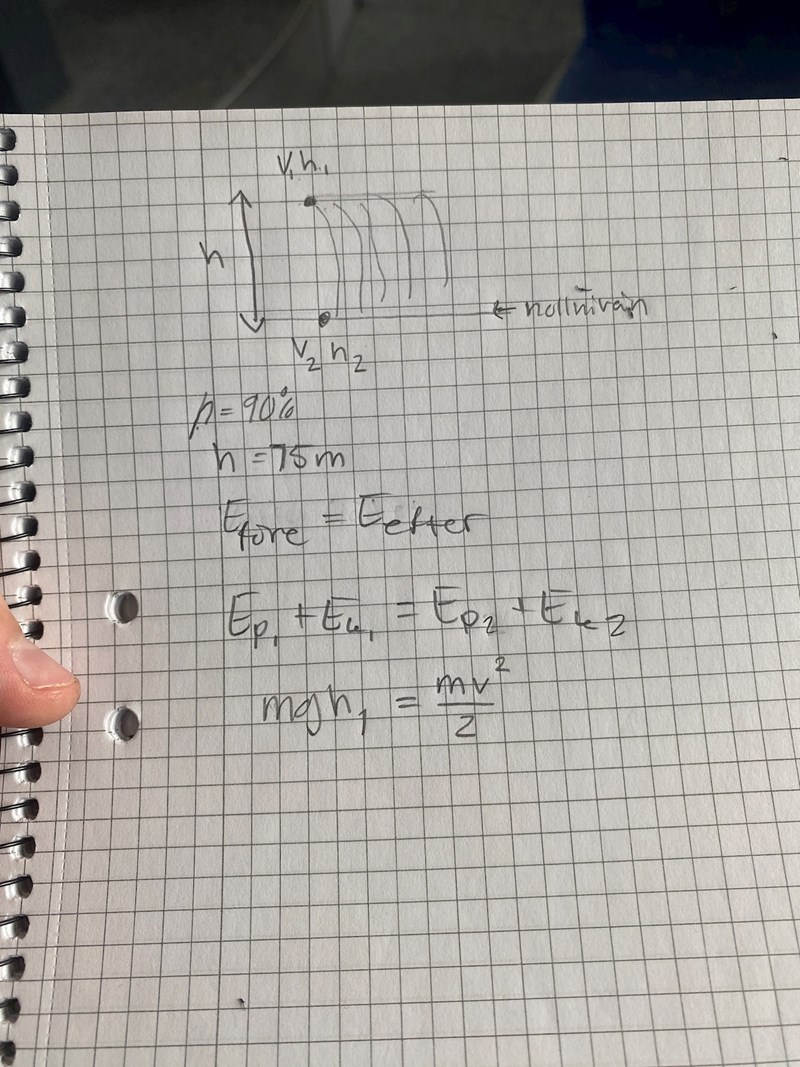 v₁h₁
h
← nollnivån
v₂ h₂
η = 90%
h = 75m
Eföre = Eefter
Ep₁ + Ek₁ = Ep₂ + Ek₂
mgh₁ = mv²/2